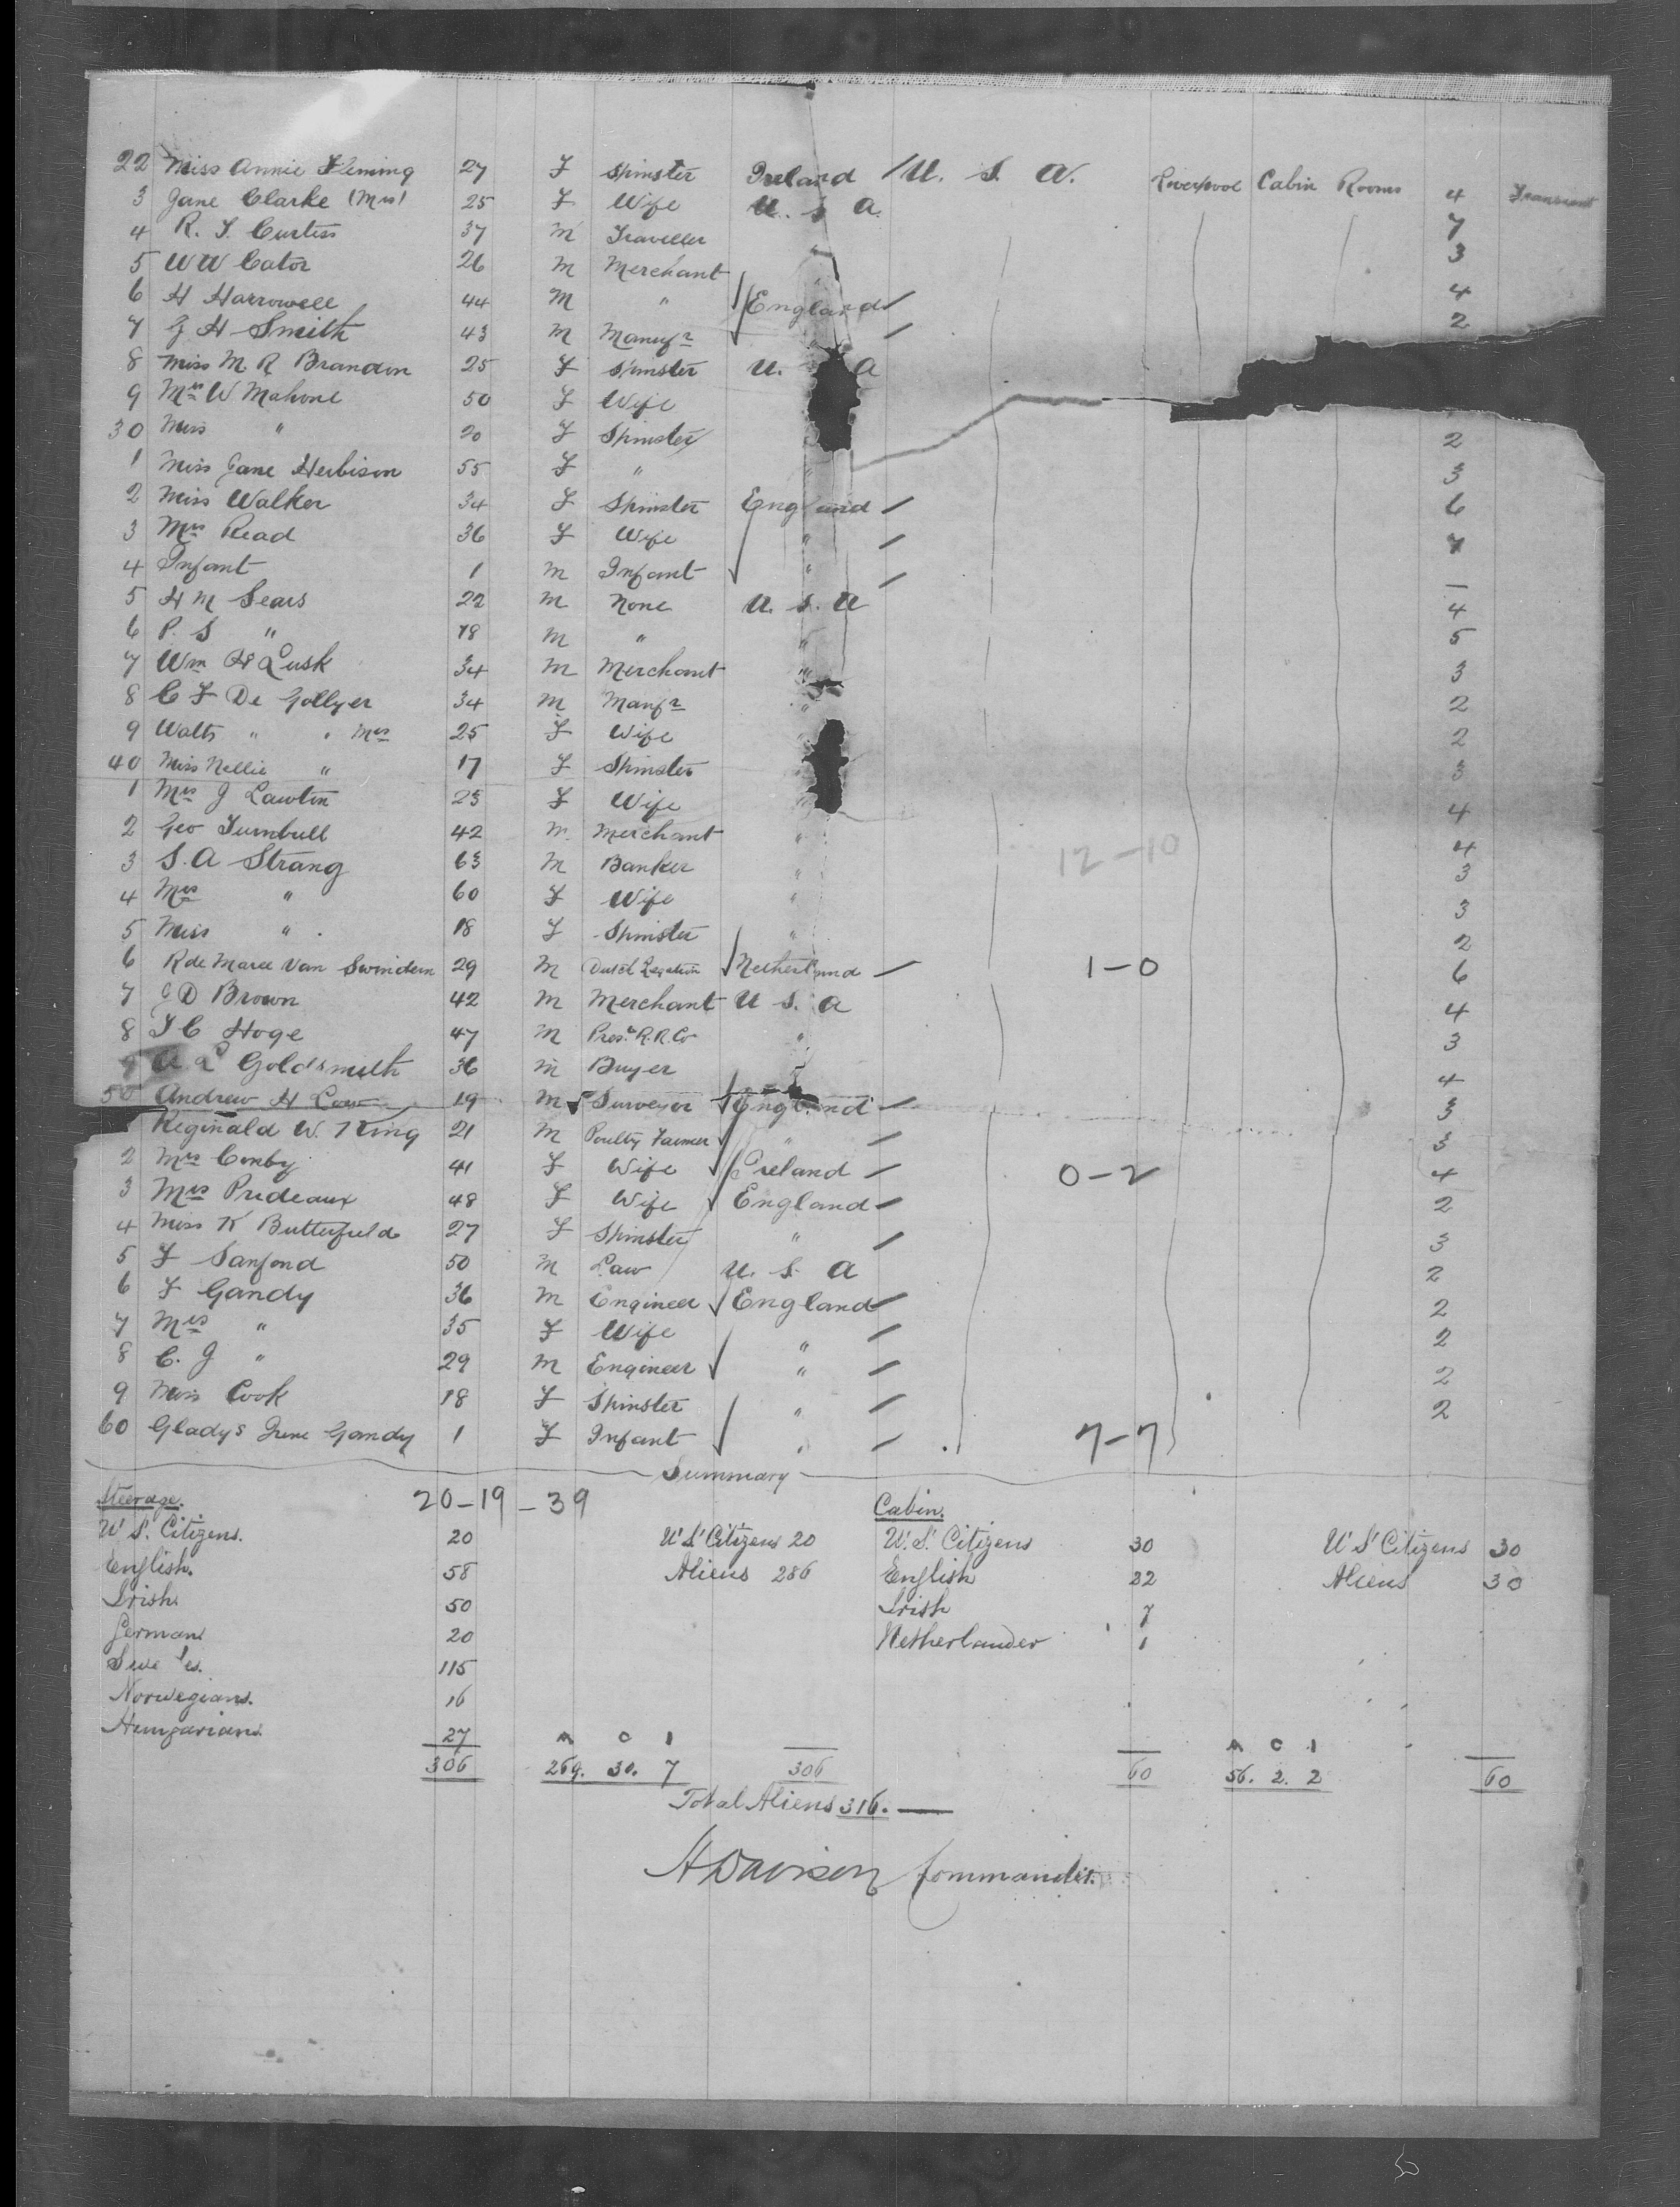 22 Miss Annie Fleming 27 F Spinster Ireland / U. S. A. Liverpool Cabin Rooms 4 Transient
3 Jane Clarke (Mrs) 25 F Wife U. S. A. 7
4 R. F. Curtiss 37 M Traveller " 3
5 W W Cator 26 M Merchant " 4
6 H Harrowell 44 M " England / 2
7 G H Smith 43 M Manufr /
8 Miss M. R Brandon 25 F Spinster U. A
9 Mrs W Mahone 50 F Wife
30 Miss " 20 F Spinster 2
1 Miss Jane Herbison 55 F " " 3
2 Miss Walker 34 F Spinster England / 6
3 Mrs Read 36 F Wife " / 7
4 Infant 1 M Infant " / —
5 H M Sears 22 M None U. S. A 4
6 P. S " 18 M " " 5
7 Wm H Lusk 34 M Merchant " 3
8 C F De Gollyer 34 M Manfr " 2
9 Watts " " Mrs 25 F Wife 2
40 Miss Nellie " 17 F Spinster 3
1 Mrs J Lawton 23 F Wife 4
2 Geo Turnbull 42 M Merchant " 4
3 S. A Strang 63 M Banker " 12-10 3
4 Mrs " 60 F Wife " 3
5 Miss " 18 F Spinster " 2
6 R de Maree Van Swindern 29 M Dutch Legation Netherland / 1-0 6
7 J D Brown 42 M Merchant U S. A 4
8 F C Hoge 47 M Prest R.R. Co " 3
9 Goldsmith 36 M Buyer 4
50 Andrew H Low 19 M Surveyor England / 3
Reginald W. King 21 M Poultry Farmer " / 3
2 Mrs Conby 41 F Wife Ireland / 0-2 4
3 Mrs Prideaux 48 F Wife England / 2
4 Miss K Butterfield 27 F Spinster " / 3
5 F Sanford 50 M Law U. S. A 2
6 F Gandy 36 M Engineer England / 2
7 Mrs " 35 F Wife " / 2
8 C. J " 29 M Engineer " / 2
9 Miss Cook 18 F Spinster " / 2
60 Gladys Irene Gandy 1 F Infant " / 7-7
Summary
Steerage. 20-19-39 Cabin.
U.S. Citizens. 20 U.S. Citizens 20 U.S. Citizens 30 U S Citizens 30
English. 58 Aliens 286 English 22 Aliens 30
Irish. 50 Irish 7
Germans 20 Netherlander 1
Swe es. 115
Norwegians. 16
Hungarians. 27 A C I A C I
306 269. 30. 7 306 60 56. 2. 2 60
Total Aliens 316.
Commander.